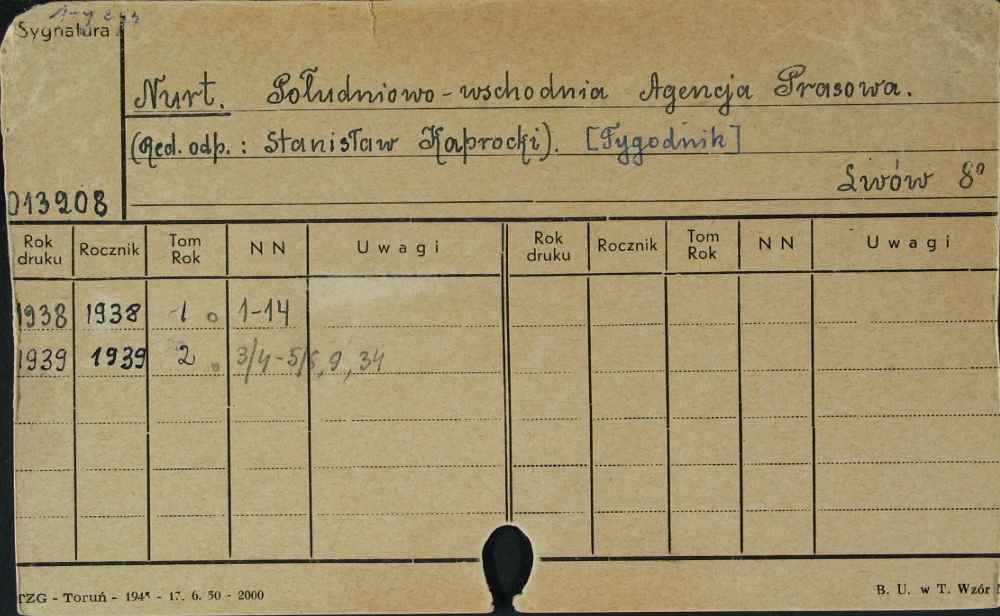 Sygnatura
Nurt. Południowo-wschodnia Agencja Prasowa.
(Red. odp.: Stanisław Kaprocki). [Tygodnik]
Lwów 8°
013208
Rok druku Rocznik Tom Rok NN Uwagi Rok druku Rocznik Tom Rok NN Uwagi
1938 1938 1. 1-14
1939 1939 2. 3/4-5/6, 9, 34
TZG - Toruń - - 17. 6. 50 - 2000
B. U. w T. Wzór